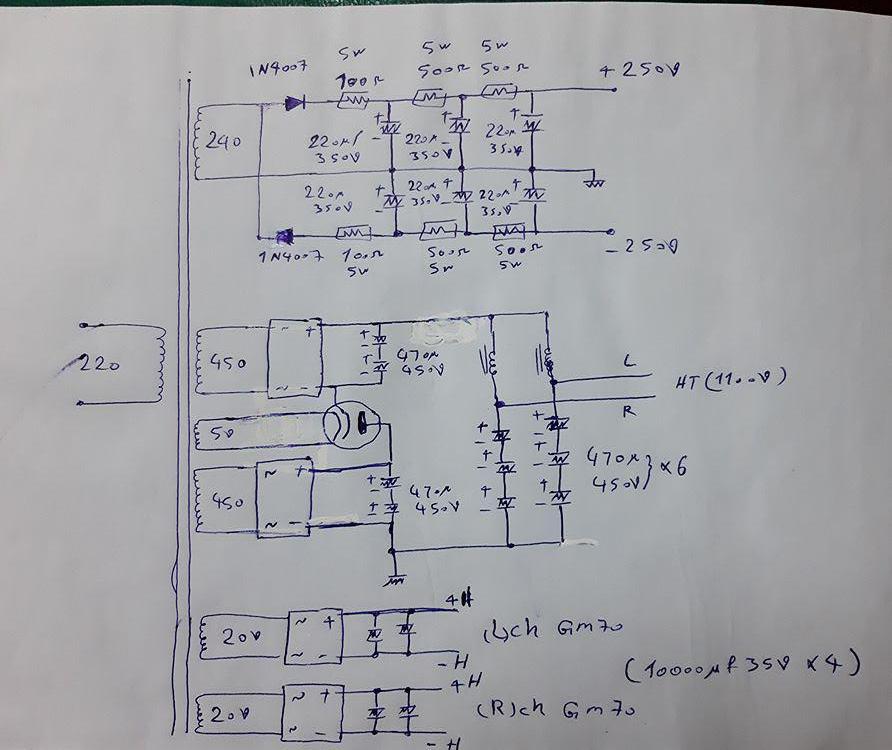 5W 5W 5W
1N4007 100Ω 500Ω 500Ω +250V
+ + +
240 220µf 220µ 220µ
- 350V - 350V 350V
220µ + 220µ + 220µ +
350V - 350V - 350V -
1N4007 100Ω 500Ω 500Ω -250V
5W 5W 5W
~ +
+
- 470µ
220 450 + 450V L HT (1100V)
~ - - R
5V + +
- -
~ + + + 470µ } x6
450 + 470µ - - 450V
- 450V + +
~ - + - -
-
~ + +H
20V (L)ch Gm70
~ - -H (10000µf 35V x4)
~ + +H
20V (R)ch Gm70
~ - -H